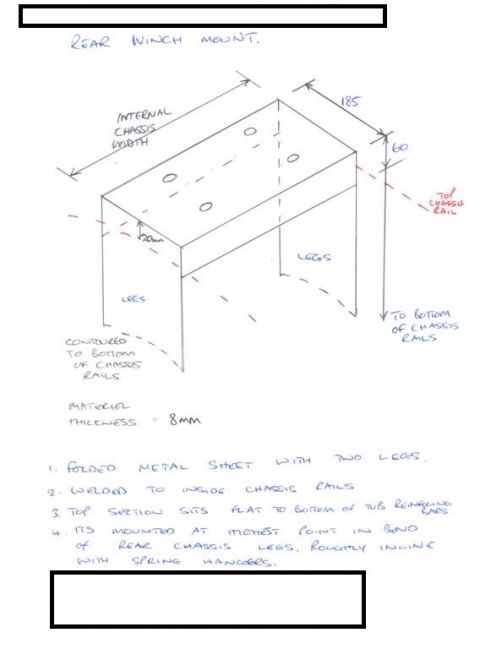 REAR WINCH MOUNT.
INTERNAL
CHASSIS
WIDTH
185
60
TOP
CHASSIS
RAIL
20mm
LEGS
LEGS
TO BOTTOM
OF CHASSIS
RAILS
CONTOURED
TO BOTTOM
OF CHASSIS
RAILS
MATERIEL
THICKNESS = 8mm
1. FOLDED METAL SHEET WITH TWO LEGS.
2. WELDED TO INSIDE CHASSIS RAILS
3 TOP SECTION SITS FLAT TO BOTTOM OF TUB
BARS
4. ITS MOUNTED AT HIGHEST POINT IN BEND
OF REAR CHASSIS LEGS. ROUGHLY INLINE
WITH SPRING HANGERS.